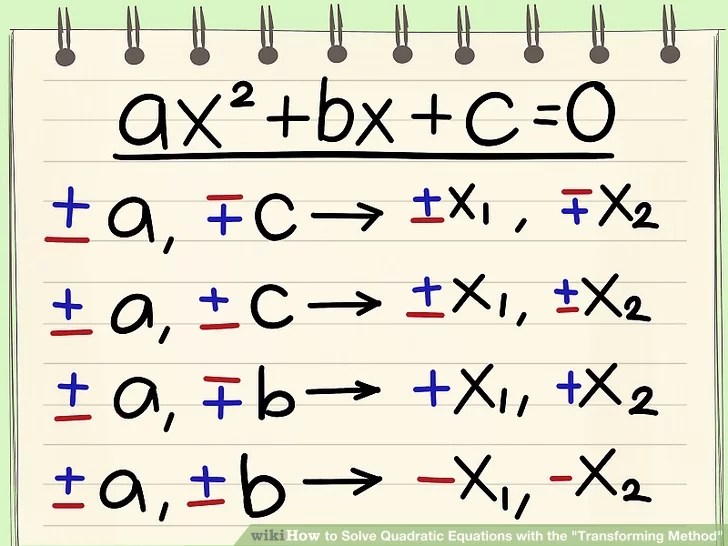 ax² + bx + c = 0
± a, ∓ c → ± x₁, ∓ x₂
± a, ± c → ± x₁, ± x₂
± a, ∓ b → + x₁, + x₂
± a, ± b → − x₁, − x₂
wikiHow to Solve Quadratic Equations with the "Transforming Method"